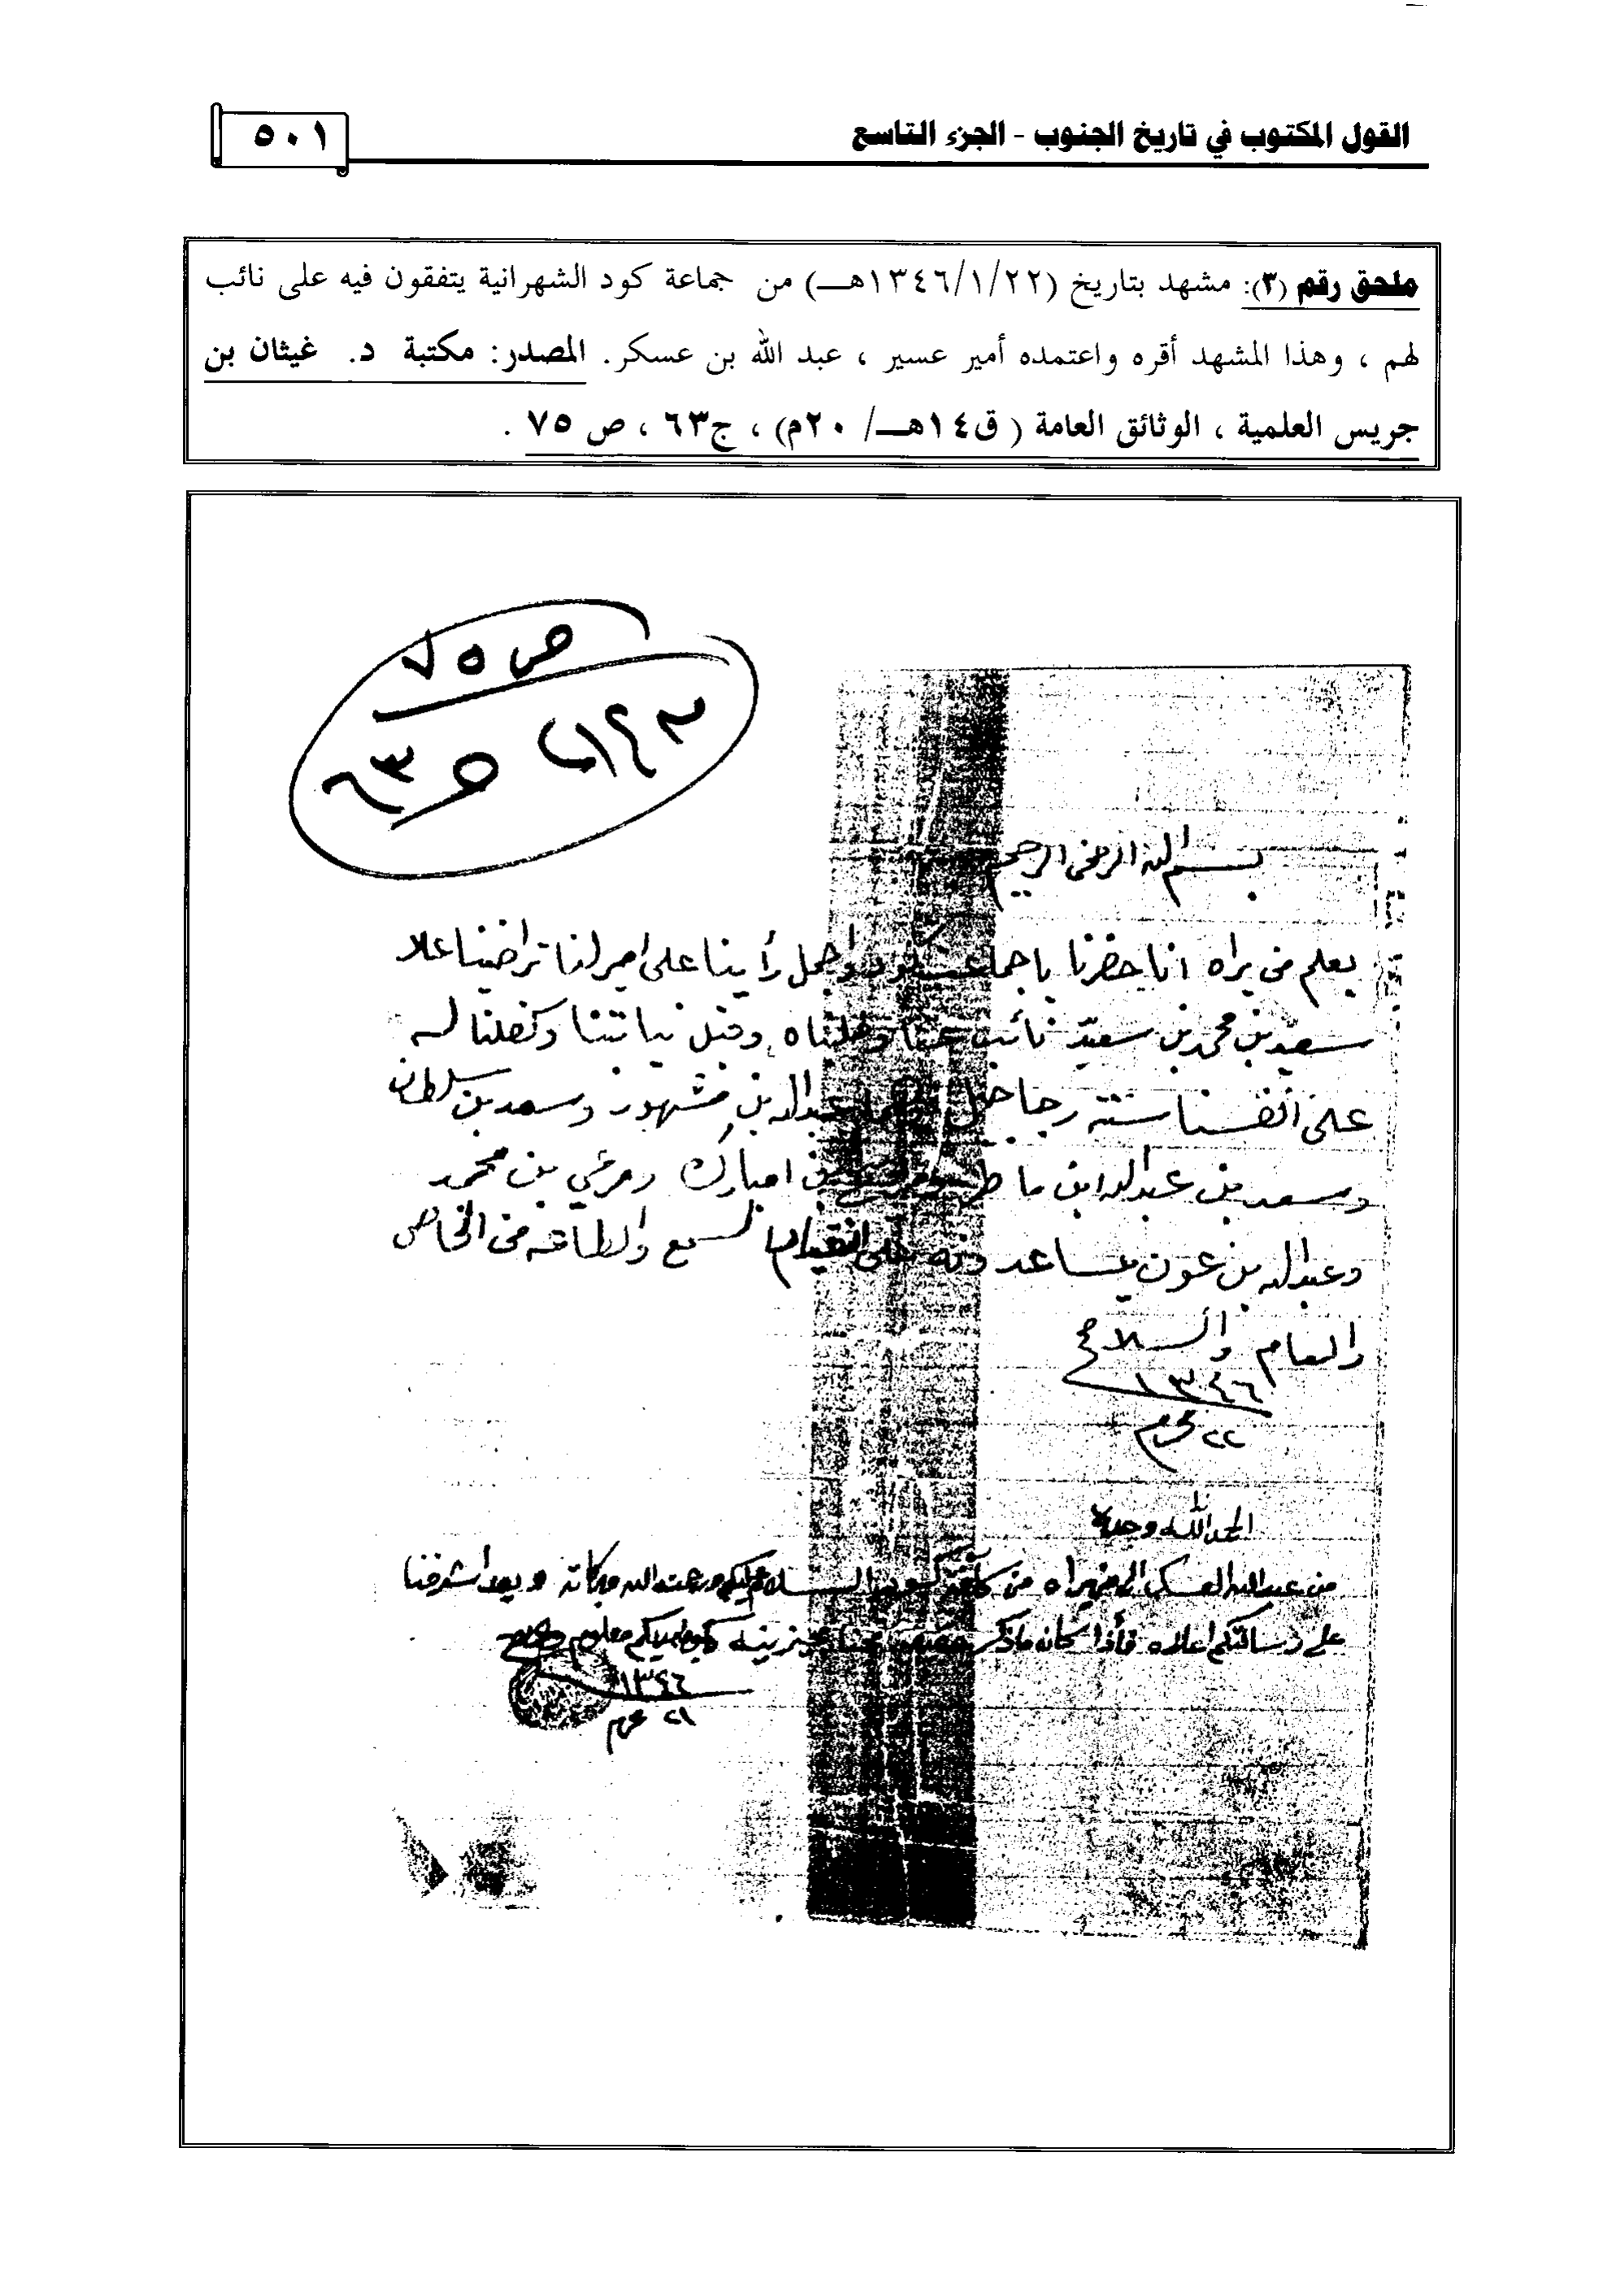 القول المكتوب في تاريخ الجنوب - الجزء التاسع
٥٠١
ملحق رقم (٣): مشهد بتاريخ (١٣٤٦/١/٢٢هـ) من جماعة كود الشهرانية يتفقون فيه على نائب
لهم ، وهذا المشهد أقره واعتمده أمير عسير ، عبد الله بن عسكر. المصدر: مكتبة د. غيثان بن
جريس العلمية ، الوثائق العامة ( ق١٤هـ/ ٢٠م) ، ج٦٣ ، ص ٧٥ .
ص ٧٥
٦٣
بسم الله الرحمن الرحيم
يعلم من يراه انا حضرنا ياجماعت كود واجمل رأينا على امر لنا تراضينا علا
سعيد بن محمد بن سعيد نائب عنا وقبل نياتنا وكفلنا له
على انفسنا ستة رجاجيل عبدالله بن مشهور وسعد بن سلطان
وسعد بن عبدالله ابن ماطر بن امبارك ومرعي بن محمد
وعبدالله بن عون يساعدونه على السمع والطاعه من الخاص
والعام والسلام
١٣٤٦
٢٢ محرم
الحمد لله وحده
من عبدالله العسكر الى من يراه من كافة كود السلام عليكم ورحمت الله وبركاته وبعد اشرفنا
على رسالتكم اعلاه فأذا كان ماذكر معلوم
١٣٤٦
٢١ محرم